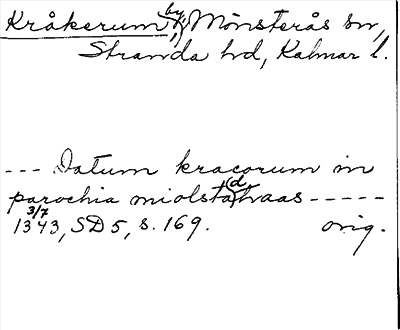 Kråkerum, by, Mönsterås sn,
Stranda hd, Kalmar l.
--- Datum kracorum in
parochia miolsta(d)haas -----
1343 3/7, SD 5, s. 169. orig.